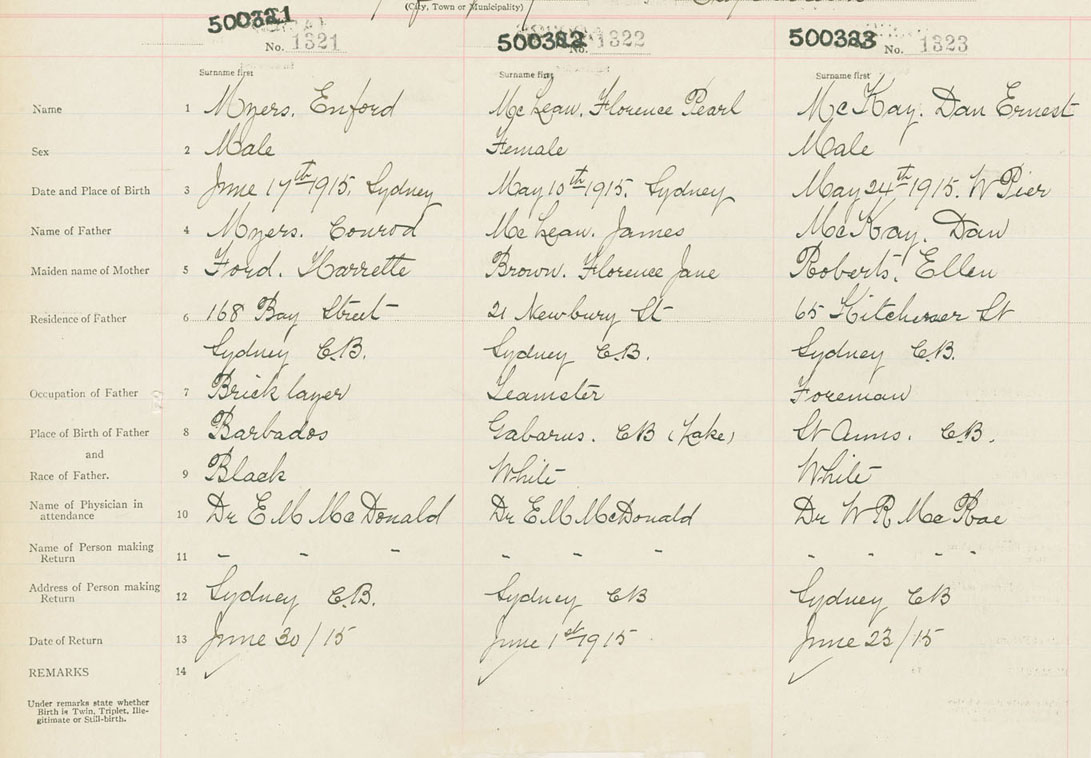 (City, Town or Municipality)
500321 500322 500323
No. 1321 No. 1322 No. 1323
Surname first Surname first Surname first
Name 1 Myers. Enford McLean. Florence Pearl McKay. Dan Ernest
Sex 2 Male Female Male
Date and Place of Birth 3 June 17th 1915, Sydney May 10th 1915, Sydney May 24th 1915. W Pier
Name of Father 4 Myers. Conrod McLean. James McKay. Dan
Maiden name of Mother 5 Ford. Harrette Brown. Florence Jane Roberts. Ellen
Residence of Father 6 168 Bay Street 21 Newbury St 65 Kitchener St
Sydney C.B. Sydney C.B. Sydney C.B.
Occupation of Father 7 Brick layer Teamster Foreman
Place of Birth of Father 8 Barbados Gabarus. CB (Lake) St Anns. C.B.
and
Race of Father. 9 Black White White
Name of Physician in
attendance 10 Dr E M McDonald Dr E M McDonald Dr W R McRae
Name of Person making
Return 11 - - - - - - - - - -
Address of Person making
Return 12 Sydney C.B. Sydney CB Sydney CB
Date of Return 13 June 30/15 June 1st 1915 June 23/15
REMARKS 14
Under remarks state whether
Birth is Twin, Triplet, Ille-
gitimate or Still-birth.